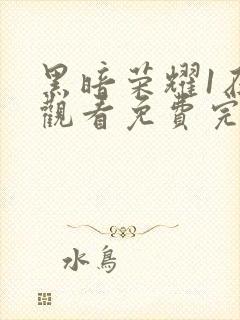 黑暗荣耀1在
觀看免費完
水鳥